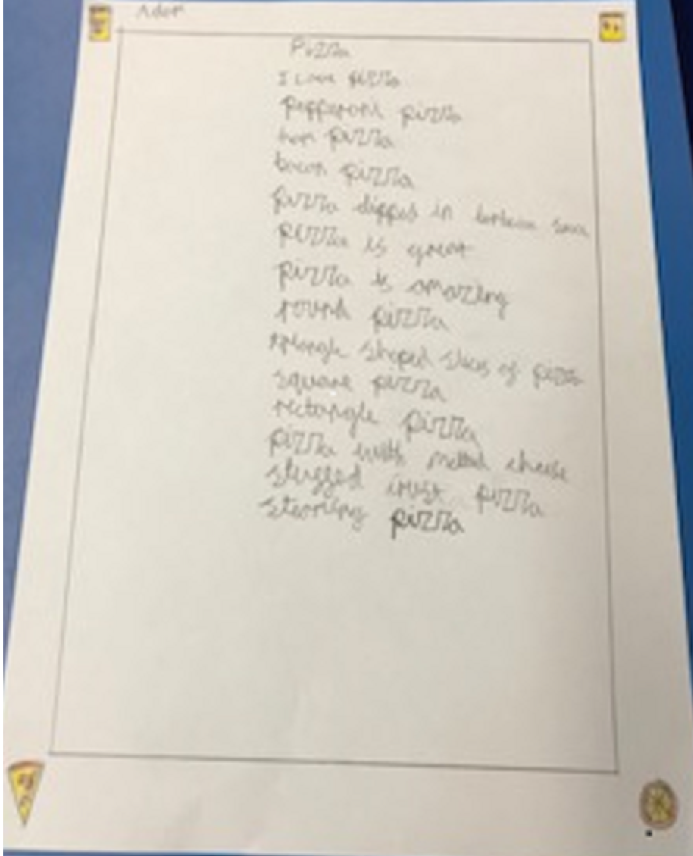 Pizza
I Love pizza
pepperoni pizza
ham pizza
bacon pizza
pizza dipped in
pizza is great
pizza is amazing
round pizza
triangle shaped slices of pizza
square pizza
rectangle pizza
pizza with melted cheese
stuffed crust pizza
steaming pizza